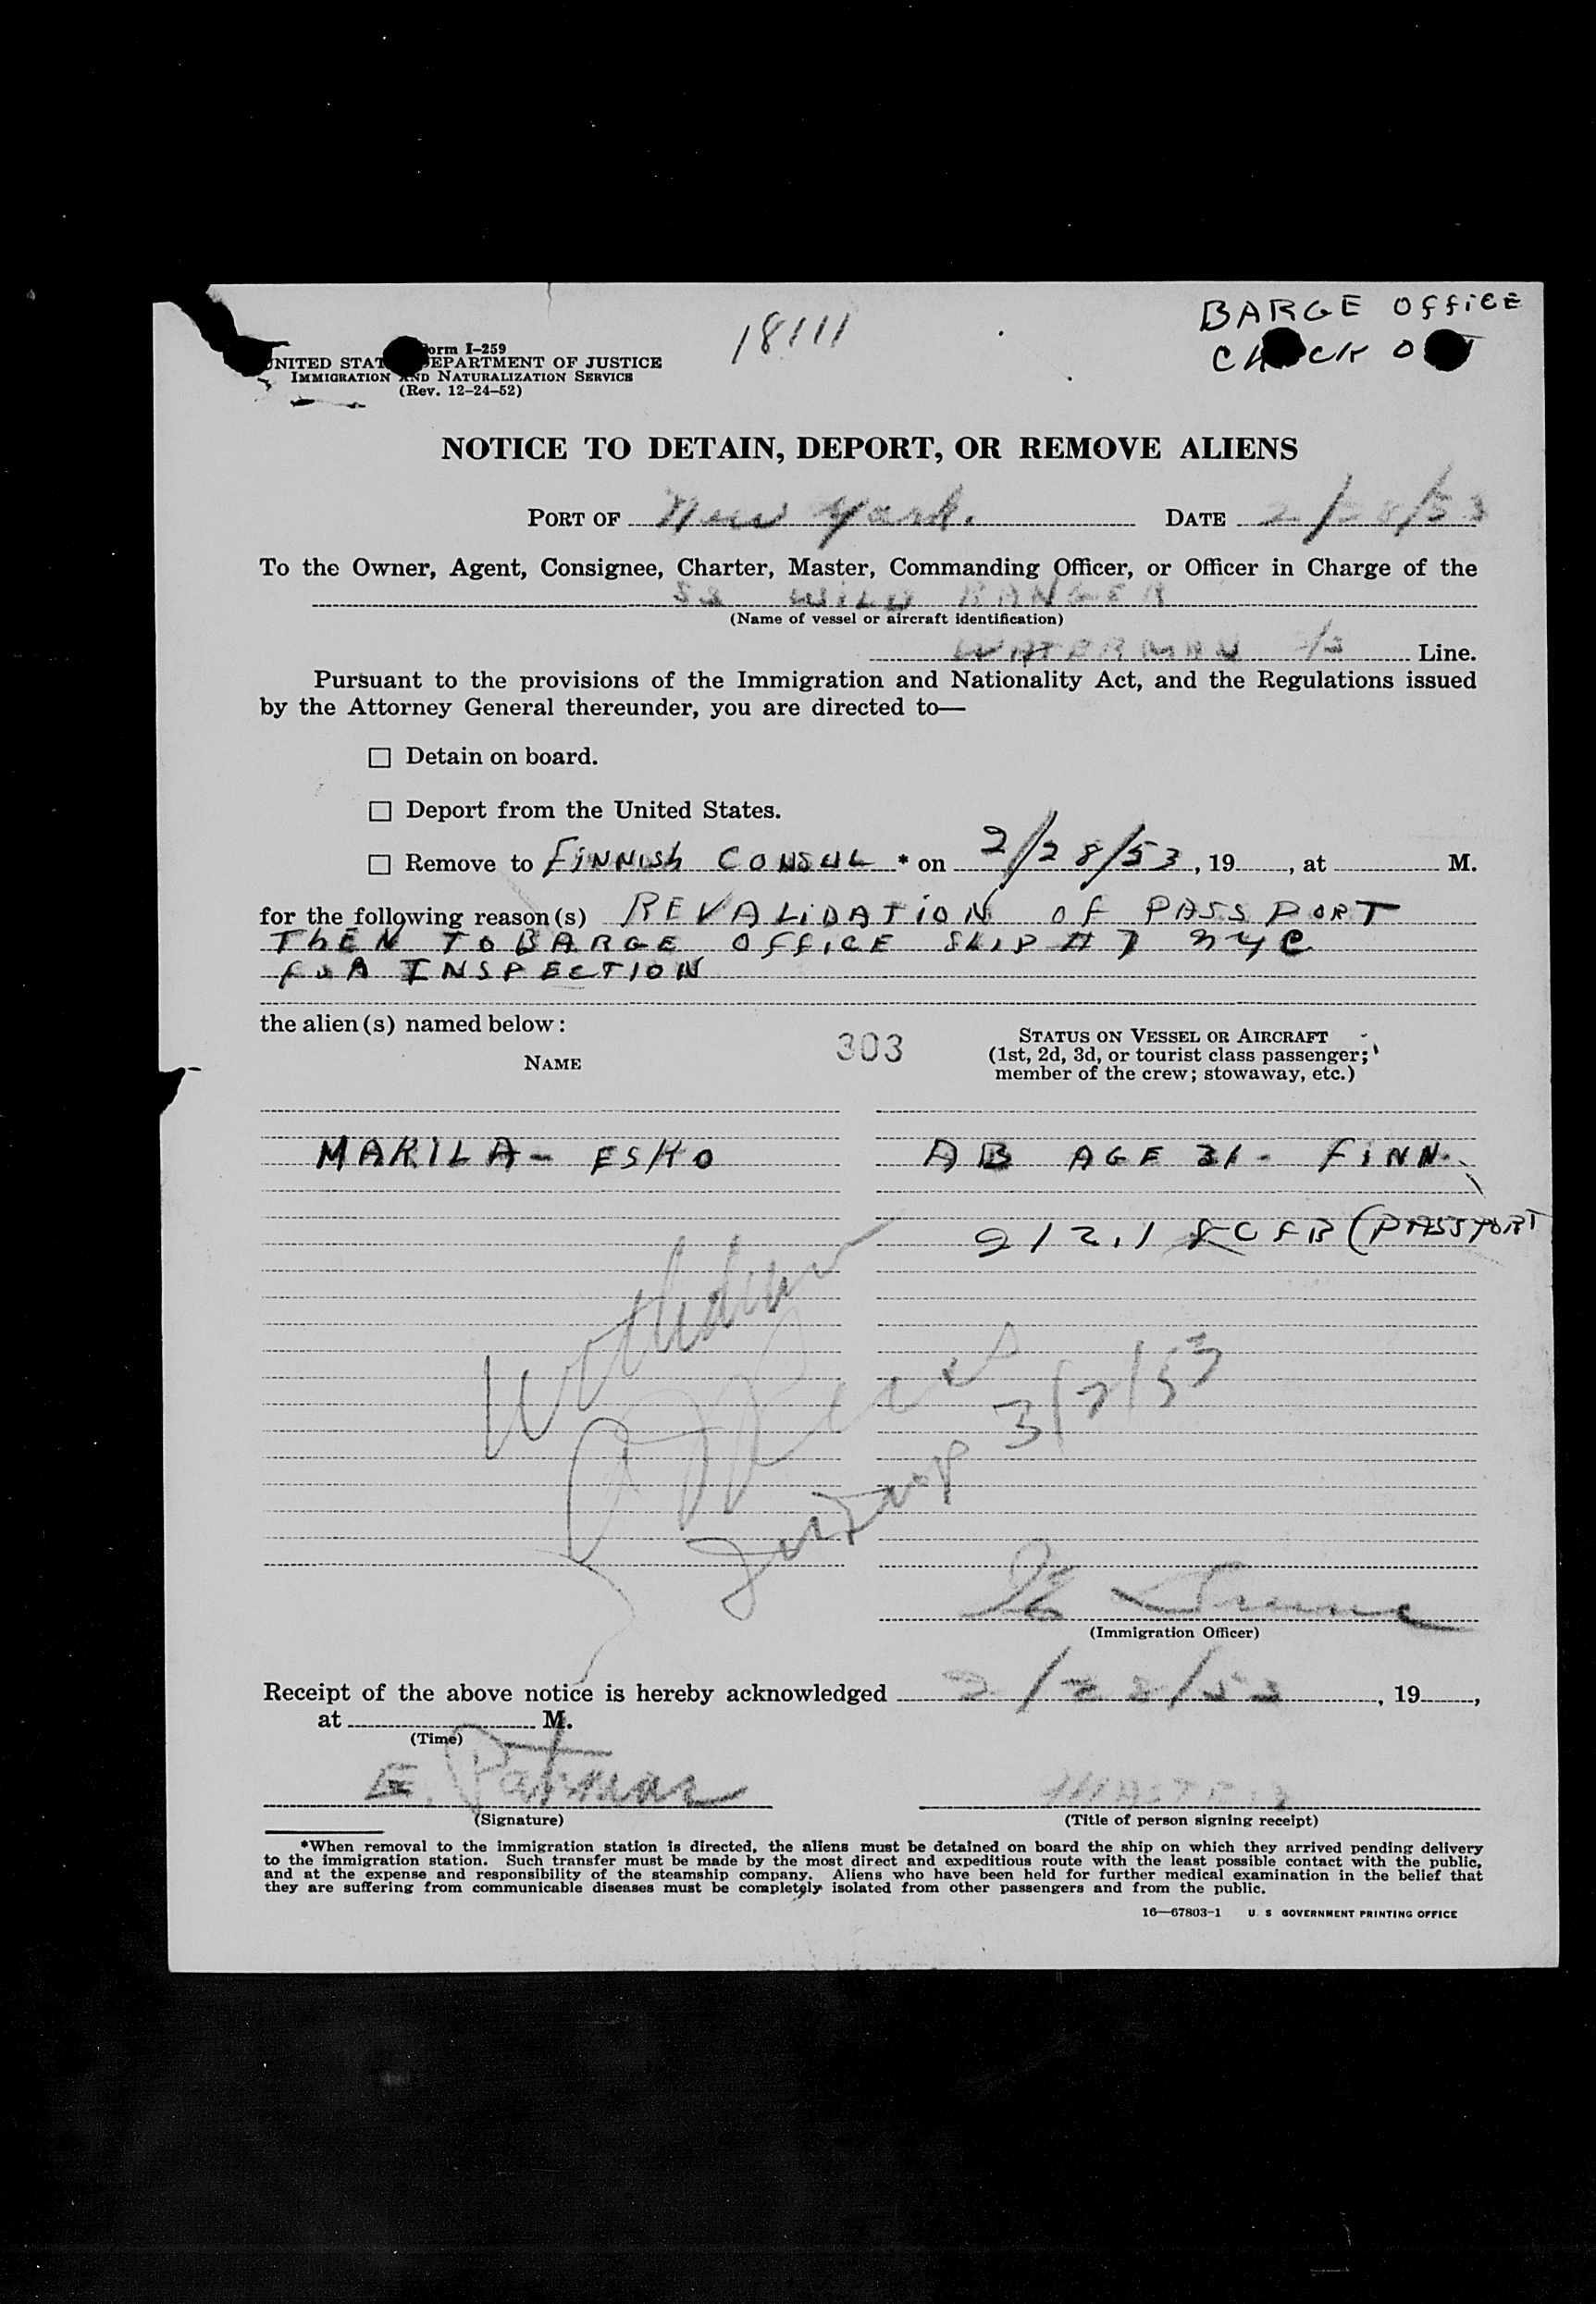 18111
BARGE OFFICE
CHECK O
Form I-259
UNITED STATES DEPARTMENT OF JUSTICE
IMMIGRATION AND NATURALIZATION SERVICE
(Rev. 12-24-52)
NOTICE TO DETAIN, DEPORT, OR REMOVE ALIENS
PORT OF New York. DATE 2/28/53
To the Owner, Agent, Consignee, Charter, Master, Commanding Officer, or Officer in Charge of the
SS WILD RANGER
(Name of vessel or aircraft identification)
WATERMAN S/S Line.
Pursuant to the provisions of the Immigration and Nationality Act, and the Regulations issued
by the Attorney General thereunder, you are directed to—
☐ Detain on board.
☐ Deport from the United States.
☐ Remove to FINNISH CONSUL * on 2/28/53, 19, at M.
for the following reason(s) REVALIDATION OF PASSPORT
THEN TO BARGE OFFICE SLIP # 7 NYC
FOR INSPECTION
the alien(s) named below:
NAME
303
STATUS ON VESSEL OR AIRCRAFT
(1st, 2d, 3d, or tourist class passenger;
member of the crew; stowaway, etc.)
MAKILA - ESKO AB AGE 31 - FINN.
212.1 8CFR (PASSPORT
3/2/53
(Immigration Officer)
Receipt of the above notice is hereby acknowledged 2/28/53, 19,
at M.
(Time)
E. Patman MASTER
(Signature) (Title of person signing receipt)
*When removal to the immigration station is directed, the aliens must be detained on board the ship on which they arrived pending delivery
to the immigration station. Such transfer must be made by the most direct and expeditious route with the least possible contact with the public,
and at the expense and responsibility of the steamship company. Aliens who have been held for further medical examination in the belief that
they are suffering from communicable diseases must be completely isolated from other passengers and from the public.
16—67803-1 U. S GOVERNMENT PRINTING OFFICE